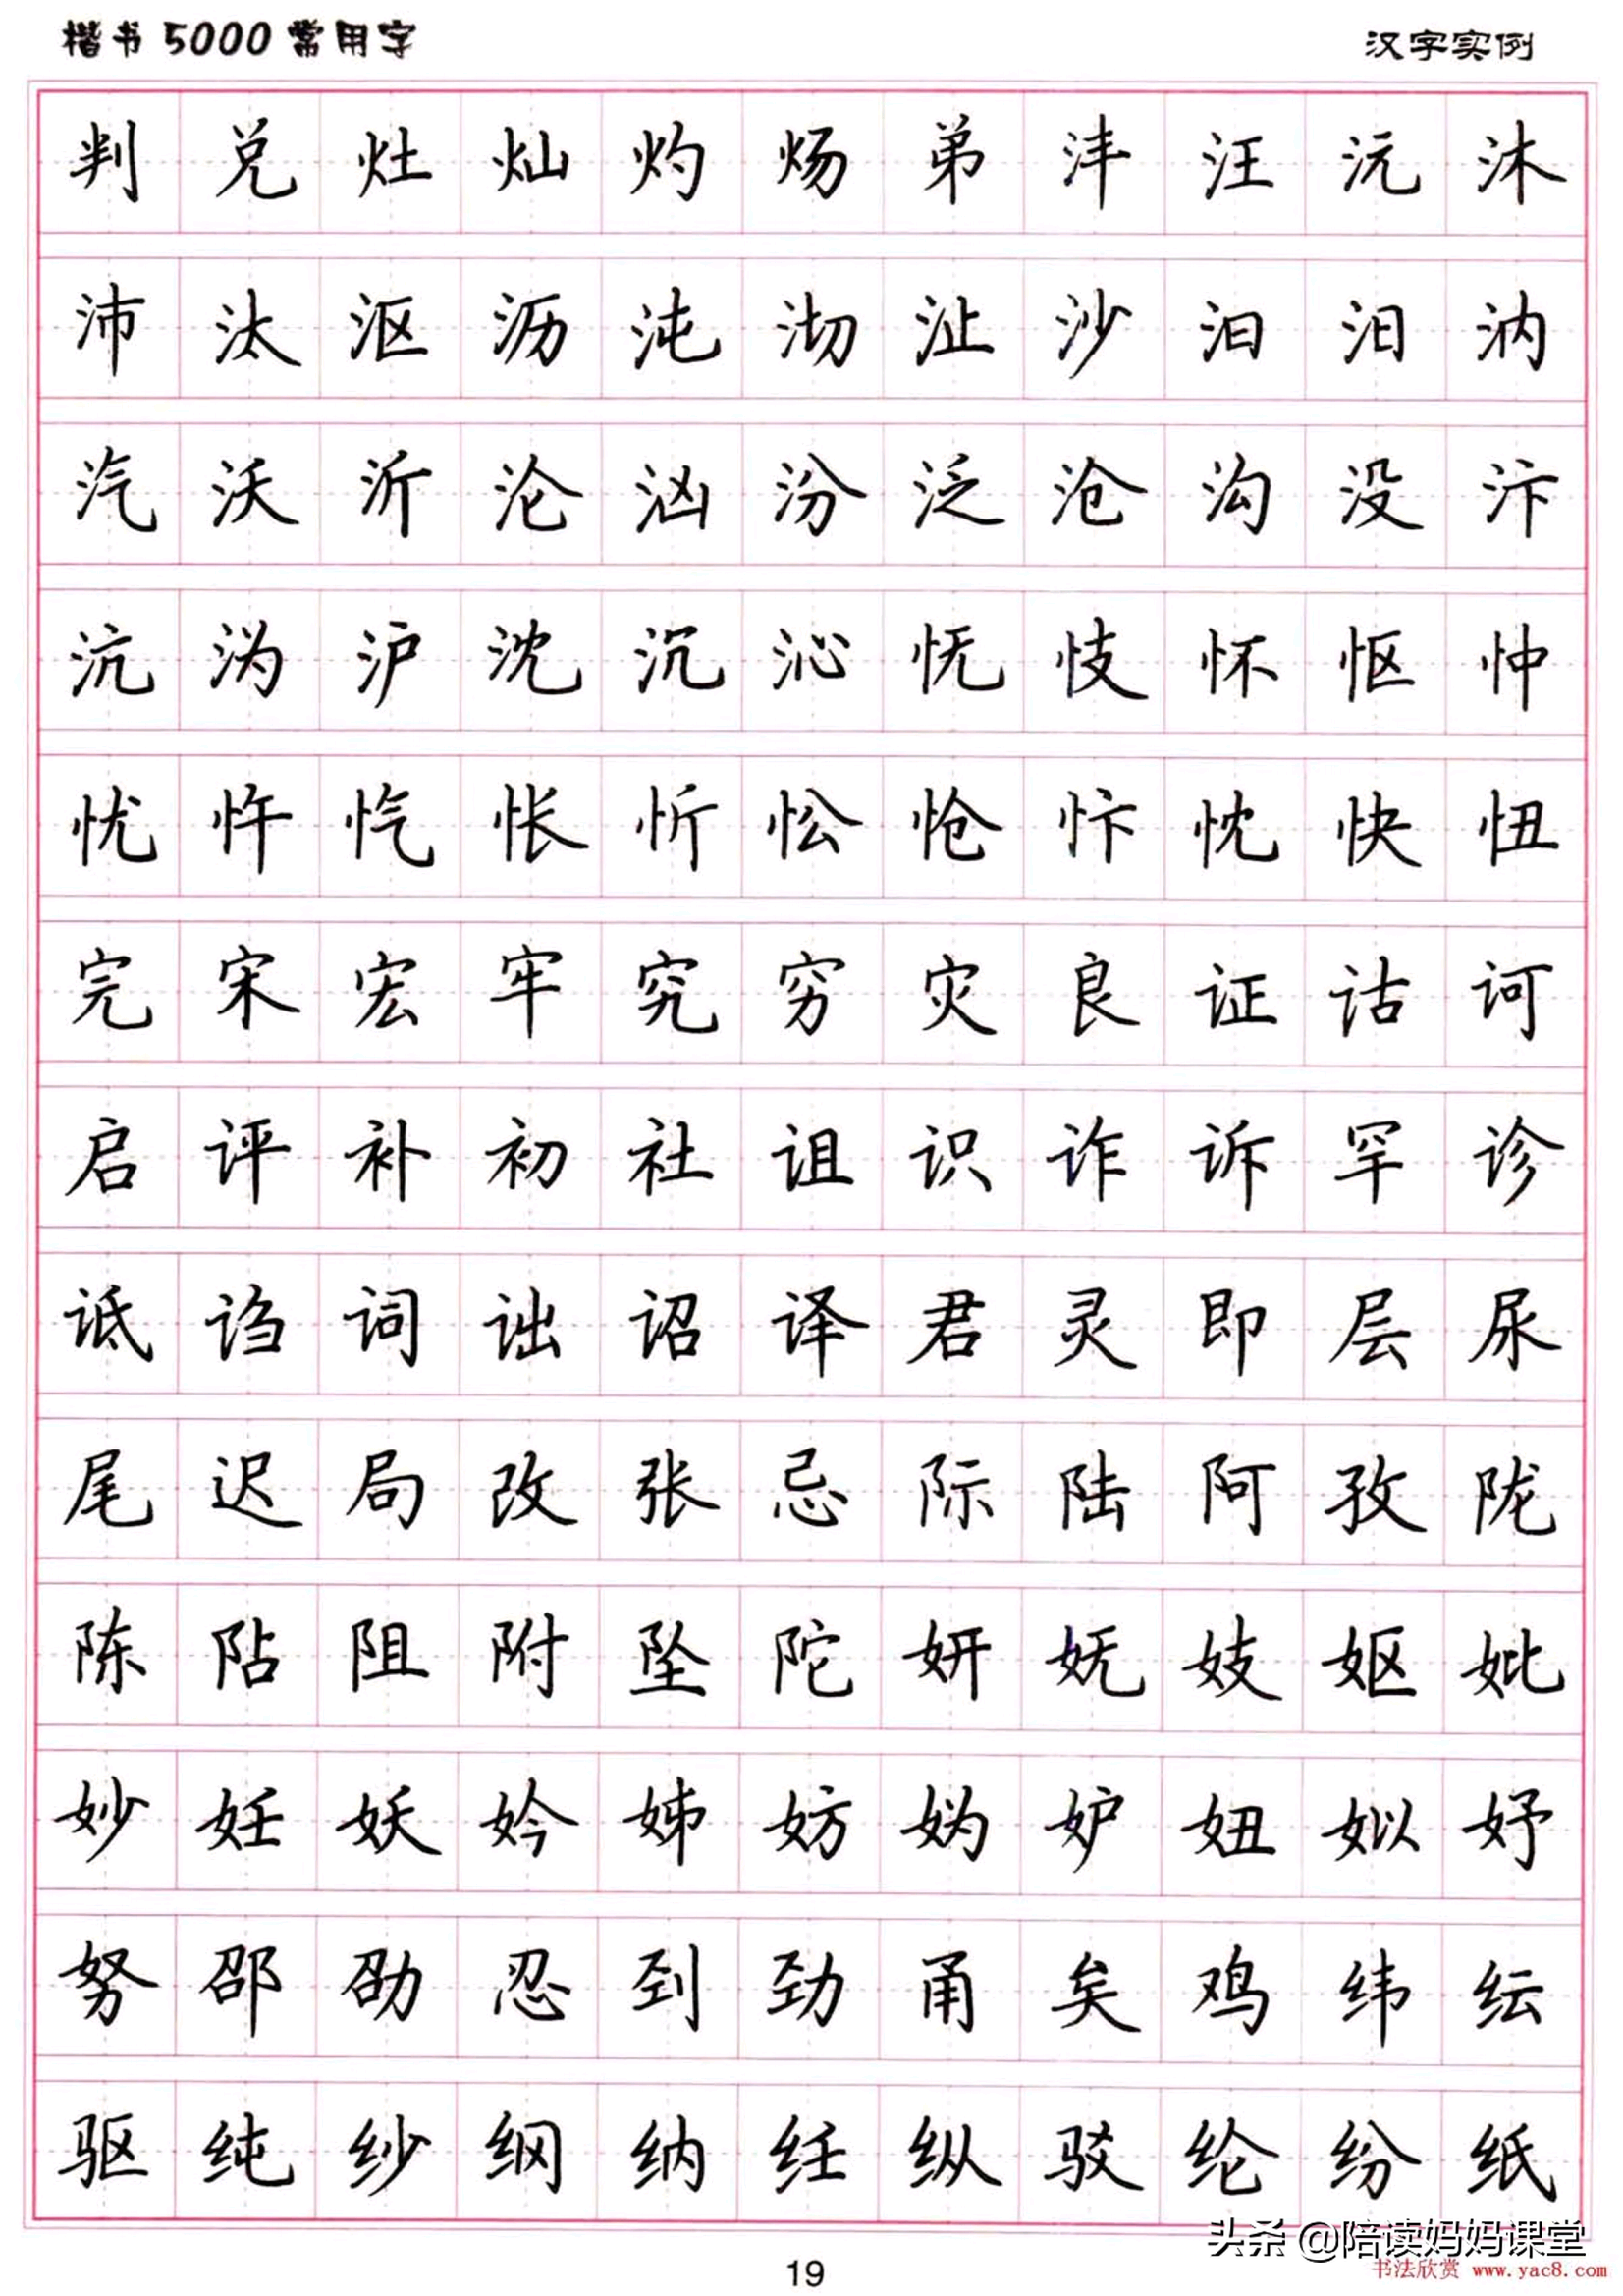 楷书5000常用字 汉字实例
判 兑 灶 灿 灼 炀 弟 沣 汪 沅 沐
沛 汰 沤 沥 沌 沏 沚 沙 汩 汨 汭
汽 沃 沂 沦 汹 汾 泛 沧 沟 没 汴
沆 沩 沪 沈 沉 沁 怃 忮 怀 怄 忡
忧 忤 忾 怅 忻 忪 怆 忭 忱 快 忸
完 宋 宏 牢 究 穷 灾 良 证 诂 诃
启 评 补 初 社 诅 识 诈 诉 罕 诊
诋 诌 词 诎 诏 译 君 灵 即 层 尿
尾 迟 局 改 张 忌 际 陆 阿 孜 陇
陈 阽 阻 附 坠 陀 妍 妩 妓 妪 妣
妙 妊 妖 妗 姊 妨 妫 妒 妞 姒 妤
努 邵 劭 忍 刭 劲 甬 矣 鸡 纬 纭
驱 纯 纱 纲 纳 纴 纵 驳 纶 纷 纸
头条 @陪读妈妈课堂
书法欣赏 www.yac8.com
19